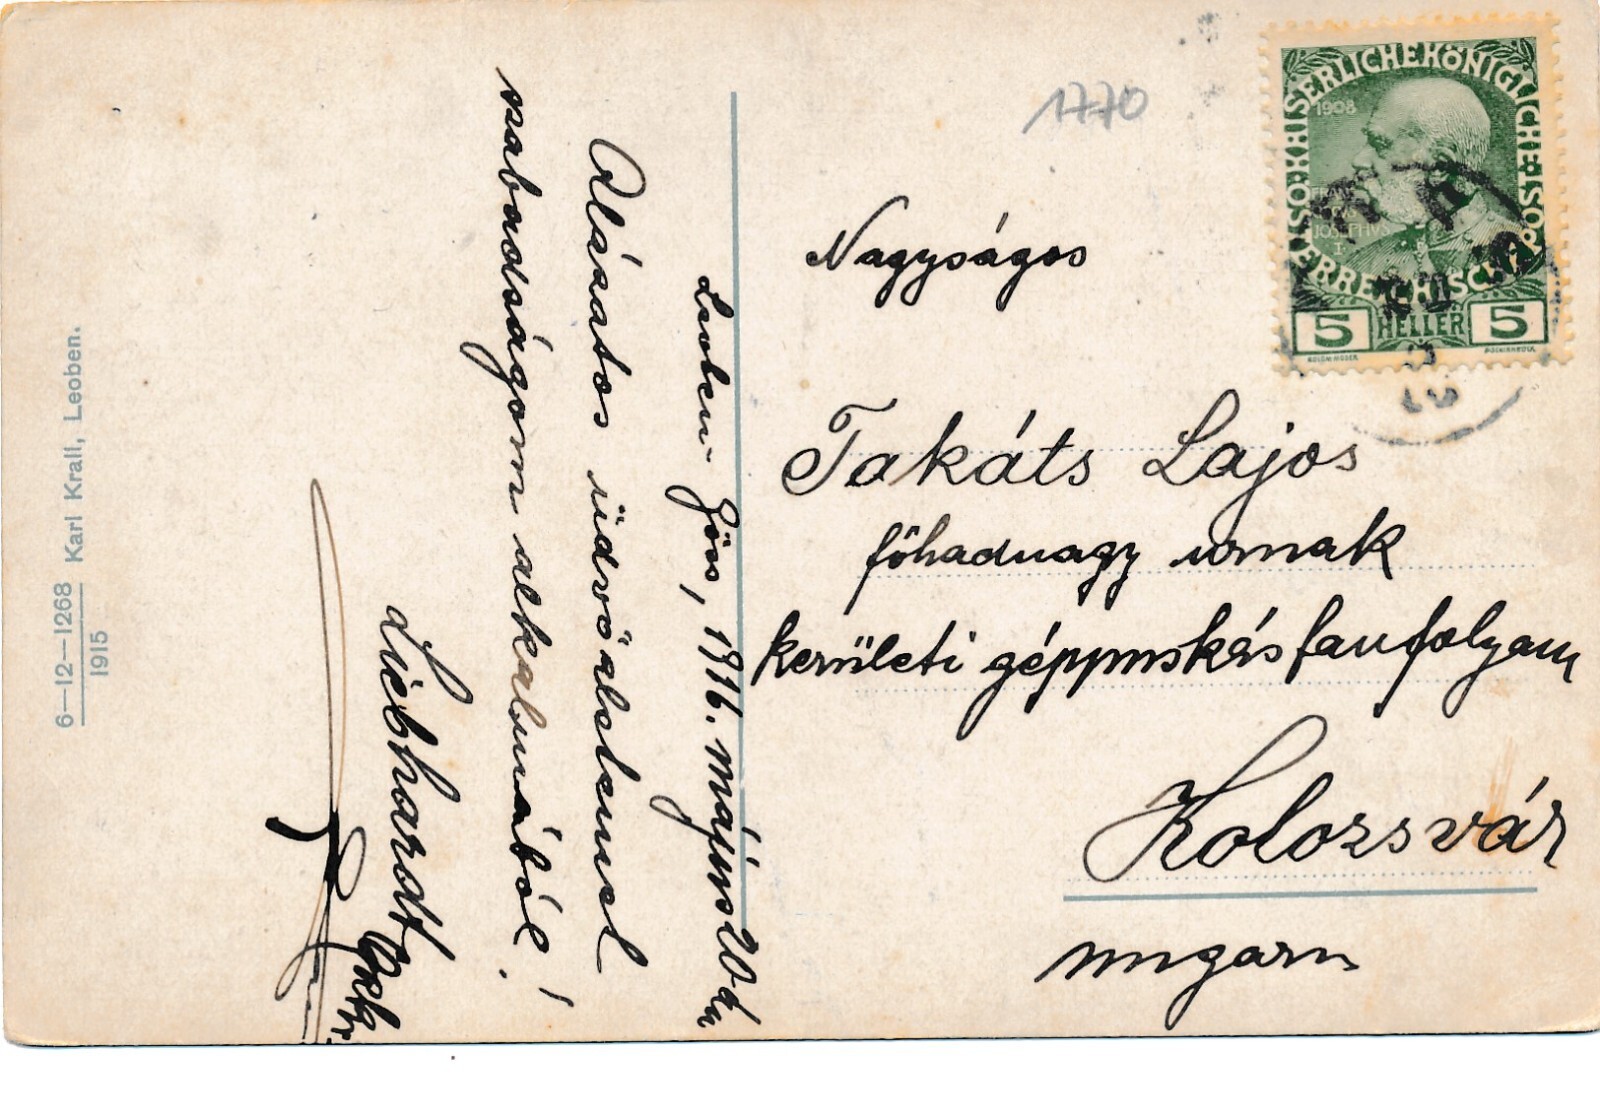 6—12—1268 Karl Krall, Leoben.
1915
Leoben-Göss, 1916. május 20án
Alázatos üdvözletemet
szabadságom alkalmából!
Liebhardt
1770
KAISERLICHE KÖNIGLICHE ÖSTERREICHISCHE POST
1908
FRANCISCVS
JOSEPHVS
I.
5 HELLER 5
Nagyságos
Takáts Lajos
főhadnagy urnak
kerületi géppuskás tanfolyam
Kolozsvár
Ungarn